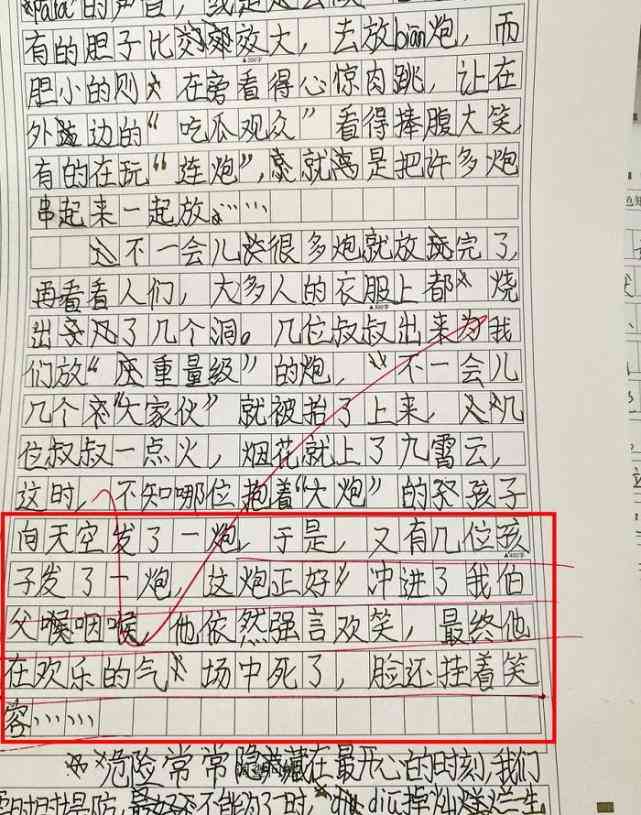 的声音,
有的胆子比效大，去放bian炮，而
胆小的则在旁看得心惊肉跳，让在
外边的“吃瓜观众”看得捧腹大笑，
有的在玩“连炮”，就是把许多炮
串起来一起放……
不一会儿很多炮就放完了，
再看看人们，大多人的衣服上都烧
出了几个洞。几位叔叔出来为我
们放“重量级”的炮，不一会儿
几个“大家伙”就被抬了上来，几
位叔叔一点火，烟花就上了九霄云，
这时，不知哪位抱着“大炮”的孩子
向天空发了一炮，于是，又有几位孩
子发了一炮，这炮正好冲进了我伯
父咽喉，他依然强言欢笑，最终他
在欢乐的气场中死了，脸还挂着笑
容……
危险常常隐藏在最开心的时刻，我们
时时提防，不能为了一时，